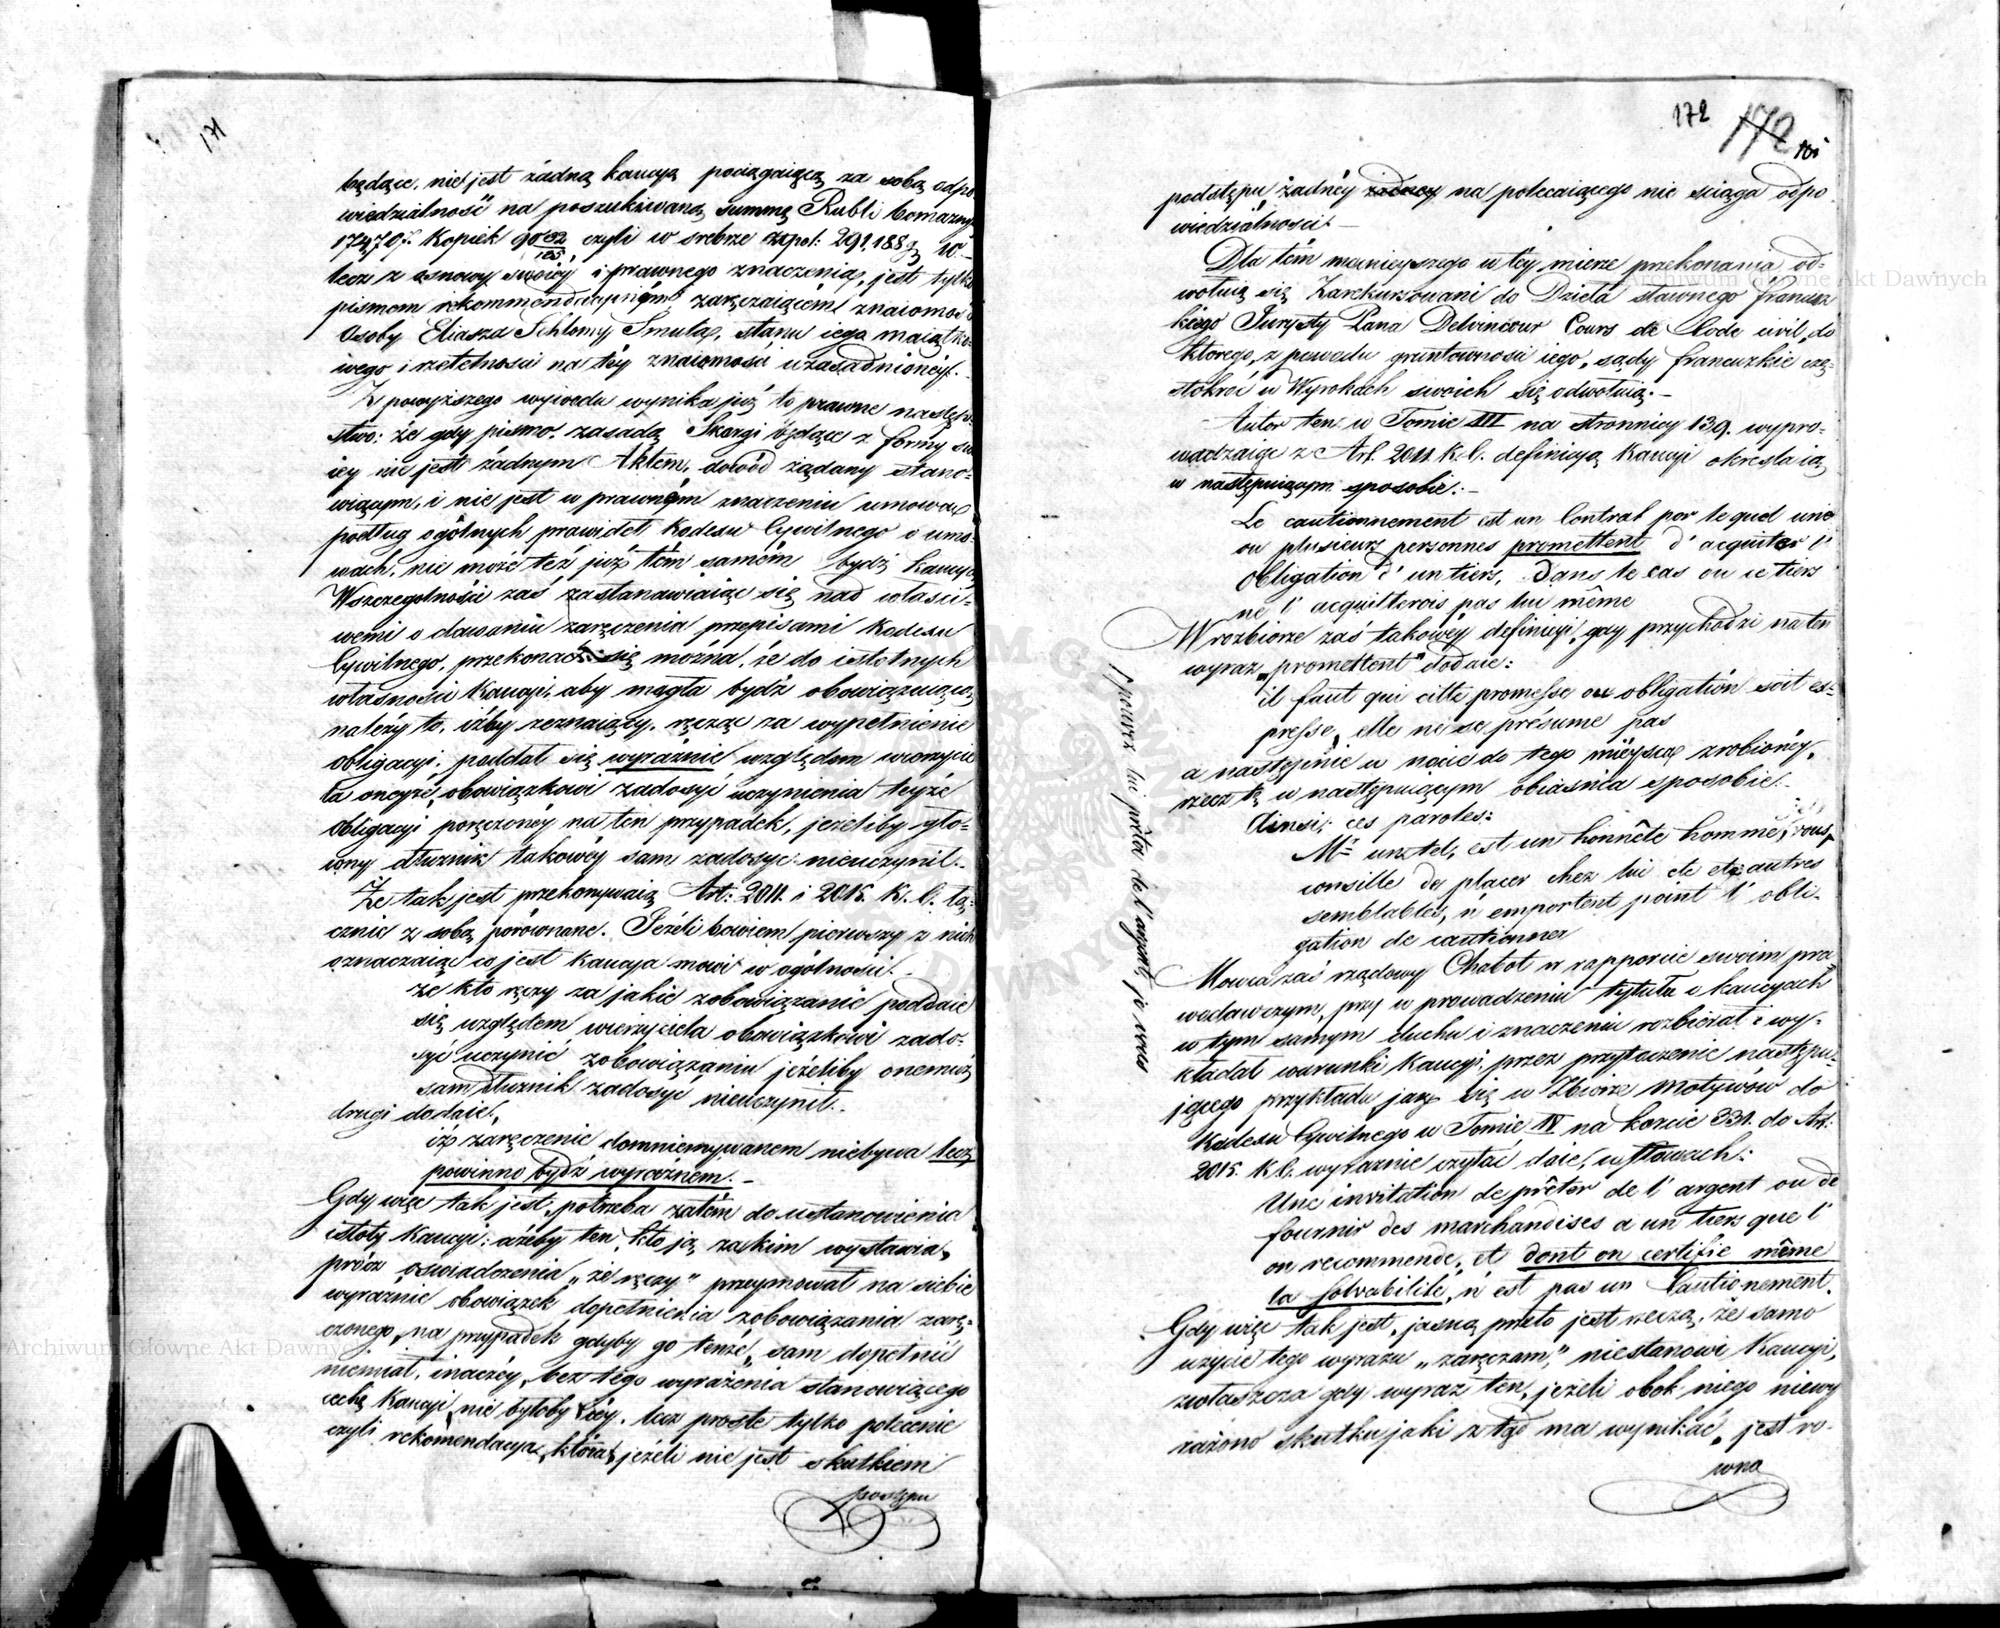 171
będące, nie jest żadną kaucyą pociągaiącą za sobą odpo
wiedzialność na poszukiwaną summę Rubli
174,707. Kopiek 90 czyli w srebrze zpol: 291.188
lecz z osnowy swoiéy i prawnego znaczenia, jest tylko
pismem rekommendacyiném zaręczaiącém znaiomość
Osoby Eliasza Schlomy Smula, stanu iego maiątko-
wego i rzetelności na téy znaiomości uzasadnionéy.
Z powyższego wywodu wynika już to prawne następ-
stwo: że gdy pismo, zasadą Skargi będące z formy sw
iey nie jest żadnym Aktem, dowód żądany stano-
wiącym, i nie jest w prawném znaczeniu umową
podług ogólnych prawideł Kodesu Cywilnego o umo-
wach, nie może też już tém samém bydź kaucyą
Wszczególności zaś zastanawiaiąc się nad właści-
wemi o dawaniu zaręczenia przepisami Kodesu
Cywilnego, przekonać się można, że do istotnych
własności Kaucyi, aby mogła bydź obowiązuiącą,
należy to, iżby zeznaiący, ręcząc za wypełnienie
obligacyi, poddał się wyraźnie względem wierzycie
la onéyże, obowiązkowi zadosyć uczynienia teyże
obligacyi poręczonéy na ten przypadek, jeżeliby głó-
wny dłużnik takowéy sam zadosyć nieuczynił.
Że tak jest przekonywaią Art: 2011. i 2015. K. C. łą-
cznie z sobą porównane. Jeżeli bowiem pierwszy z nich
oznaczaiąc co jest kaucya mówi w ogólności.
że kto ręczy za jakie zobowiązanie poddaie
się względem wierzyciela obowiązkowi zado-
syć uczynić zobowiązaniu jeżeliby onemuż
sam dłużnik zadosyć nieuczynił.
drugi dodaie,
iż zaręczenie domniemywanem niebywa lecz
powinno bydź wyraźnem.
Gdy więc tak jest, potrzeba zatém do ustanowienia
istoty Kaucyi: ażeby ten, kto ją za kim wystawia,
prócz oświadczenia „że ręczy" przyimował na siebie
wyraźnie obowiązek dopełnienia zobowiązania zarę-
czonego, na przypadek gdyby go tenże, sam dopełnić
niemiał, inaczéy, bez tego wyrażenia stanowiącego
cechę Kaucyi, nie byłoby iéy, lecz proste tylko polecenie
czyli rekomendacya, która, jeżeli nie jest skutkiem
podstępu
172
172
podstępu, żadnéy na polecaiącego nie sciąga odpo
wiedzialności.
Dla tém mocnieyszego w téy mierze przekonania od-
wołuią się Zarekursowani do Dzieła sławnego francuz
kiego Jurysty Pana Delvincour Cours de Code civil, do
którego, z powodu gruntowności iego, sądy francuzkie czę-
stokroć w Wyrokach swoich się odwołuią.
Autor ten w Tomie III na stronnicy 139. wypro-
wadzaiąc z Art. 2011. K. C. definicyą Kaucyi określa ią
w następuiącym sposobie.
Le cautionnement est un Contrat par le quel une
ou plusieurs personnes promettent d'acquitter l'
obligation d'un tiers, dans le cas ou ce tiers
ne l'acquitterois pas lui même
W rozbiorze zaś takowéy definicyi, gdy przychodzi na ten
wyraz „promettent" dodaie:
il faut qui cette promesse ou obligation soit ex-
presse, elle ne se présume pas
a następnie w nocie do tego mieysca zrobionéy,
rzecz tę w następuiącym obiaśnia sposobie.
Ainsi; ces paroles:
Mr un tel, est un honnête homme, vous
pouvez lui prêter de l'argent, je vous
conseille de placer chez lui etc et autres
semblables, n'emportent point l'obli-
gation de cautionner
Mówca zaś rządowy Chabot w rapporcie swoim pra
wodawczym, przy wprowadzeniu tytułu o kaucyach
w tym samym duchu i znaczeniu rozbierał i wy-
kładał warunki Kaucyi, przez przytoczenie następu-
jącego przykładu jaki się w Zbiorze Motywów do
Kodesu Cywilnego w Tomie IV na karcie 331. do Art:
2015. K. C. wyraźnie czytać daie, w słowach:
Une invitation de prêter de l'argent ou de
fournir des marchandises a un tiers que l'
on recommende, et dont on certifie même
la solvabilité, n'est pas un Cautionement.
Gdy więc tak jest, jasną przeto jest rzeczą, że samo
użycie tego wyrazu „zaręczam," niestanowi Kaucyi,
zwłaszcza gdy wyraz ten, jeżeli obok niego niewy
rażono skutku jaki z tąd ma wynikać, jest ró-
wno
Archiwum Główne Akt Dawnych
Archiwum Główne Akt Dawnych